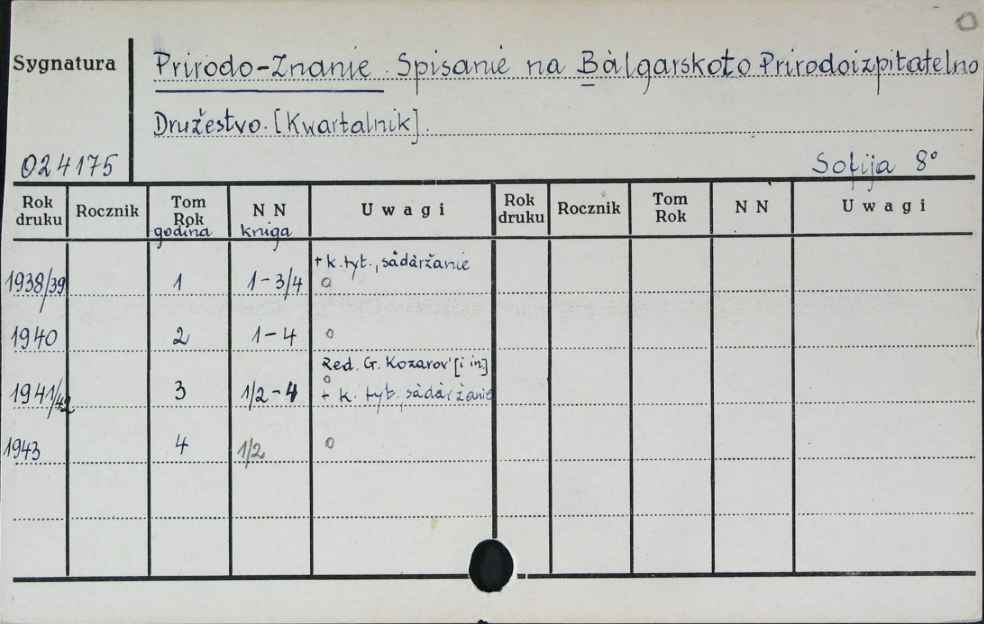 Sygnatura
Prirodo-Znanie. Spisanie na Bàlgarskoto Prirodoizpitatelno
Družestvo. [Kwartalnik].
024175
Sofija 8°
Rok druku Rocznik Tom Rok godina NN kniga Uwagi Rok druku Rocznik Tom Rok NN Uwagi
+ k. tyt., sàdàržanie
1938/39 1 1-3/4 o
1940 2 1-4 o
Red. G. Kozarov' [i in]
o
1941/42 3 1/2-4 + k. tyt., sàdàržanie
1943 4 1/2 o